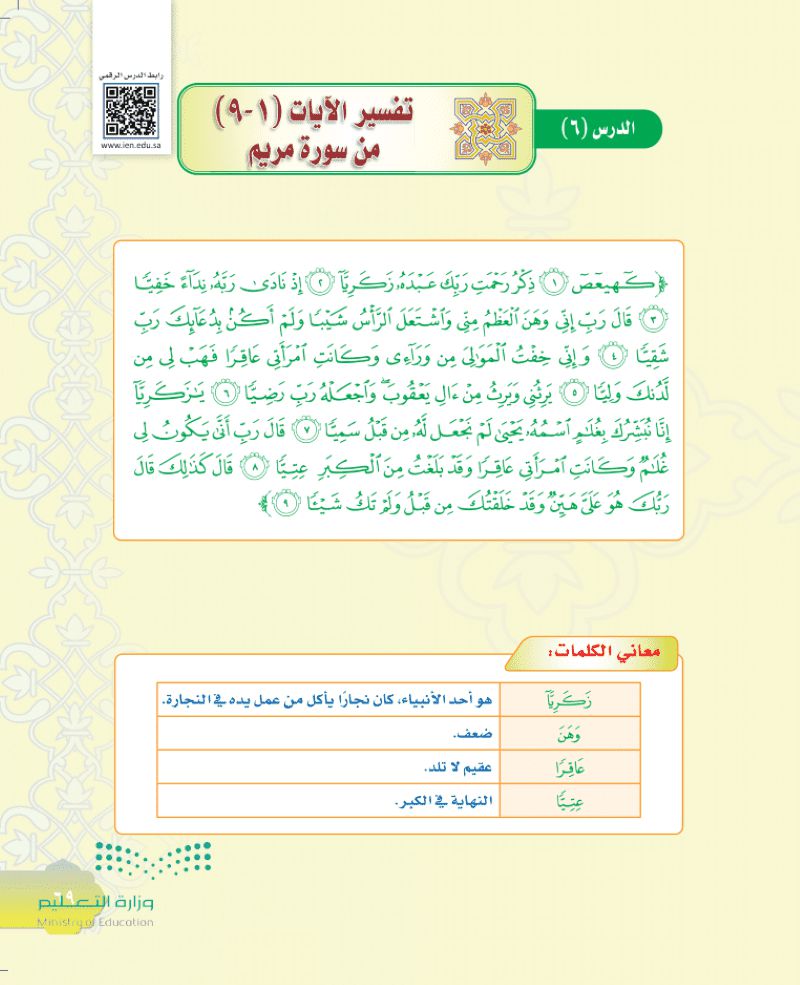 رابط الدرس الرقمي
www.ien.edu.sa
الدرس (٦)
تفسير الآيات (١-٩)
من سورة مريم
﴿كٓهيعٓصٓ ١ ذِكْرُ رَحْمَتِ رَبِّكَ عَبْدَهُۥ زَكَرِيَّآ ٢ إِذْ نَادَىٰ رَبَّهُۥ نِدَآءً خَفِيًّا
٣ قَالَ رَبِّ إِنِّي وَهَنَ ٱلْعَظْمُ مِنِّي وَٱشْتَعَلَ ٱلرَّأْسُ شَيْبًا وَلَمْ أَكُنۢ بِدُعَآئِكَ رَبِّ
شَقِيًّا ٤ وَإِنِّي خِفْتُ ٱلْمَوَٰلِيَ مِن وَرَآءِي وَكَانَتِ ٱمْرَأَتِي عَاقِرًا فَهَبْ لِي مِن
لَّدُنكَ وَلِيًّا ٥ يَرِثُنِي وَيَرِثُ مِنْ ءَالِ يَعْقُوبَ ۖ وَٱجْعَلْهُ رَبِّ رَضِيًّا ٦ يَٰزَكَرِيَّآ
إِنَّا نُبَشِّرُكَ بِغُلَٰمٍ ٱسْمُهُۥ يَحْيَىٰ لَمْ نَجْعَل لَّهُۥ مِن قَبْلُ سَمِيًّا ٧ قَالَ رَبِّ أَنَّىٰ يَكُونُ لِي
غُلَٰمٌ وَكَانَتِ ٱمْرَأَتِي عَاقِرًا وَقَدْ بَلَغْتُ مِنَ ٱلْكِبَرِ عِتِيًّا ٨ قَالَ كَذَٰلِكَ قَالَ
رَبُّكَ هُوَ عَلَيَّ هَيِّنٌ وَقَدْ خَلَقْتُكَ مِن قَبْلُ وَلَمْ تَكُ شَيْـًٔا ٩﴾
معاني الكلمات:
زَكَرِيَّآ هو أحد الأنبياء، كان نجارًا يأكل من عمل يده في النجارة.
وَهَنَ ضعف.
عَاقِرًا عقيم لا تلد.
عِتِيًّا النهاية في الكبر.
وزارة التعليم
Ministry of Education
٦٩